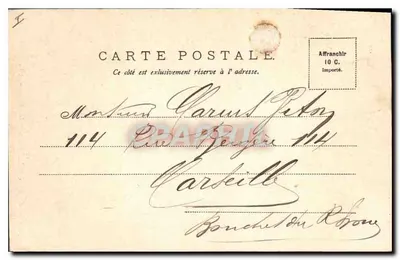 I
CARTE POSTALE.
Ce côté est exclusivement réservé à l'adresse.
Affranchir
10 C.
Importé.
Monsieur Marius
114 Rue 114
Marseille
Bouches du Rhone